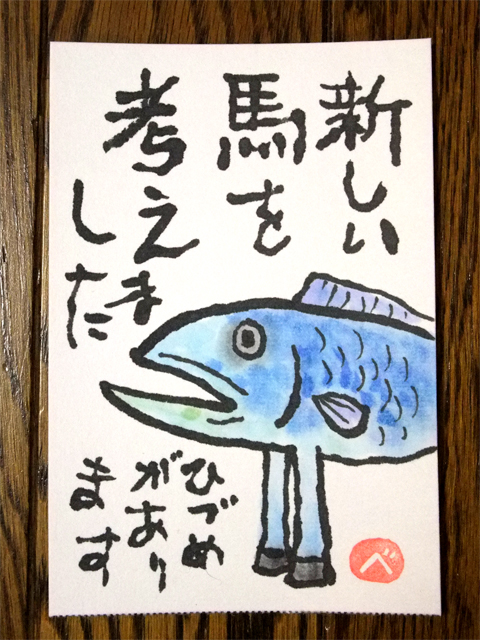 新しい
馬を
考えま
した
ひづめ
があり
ます
べ